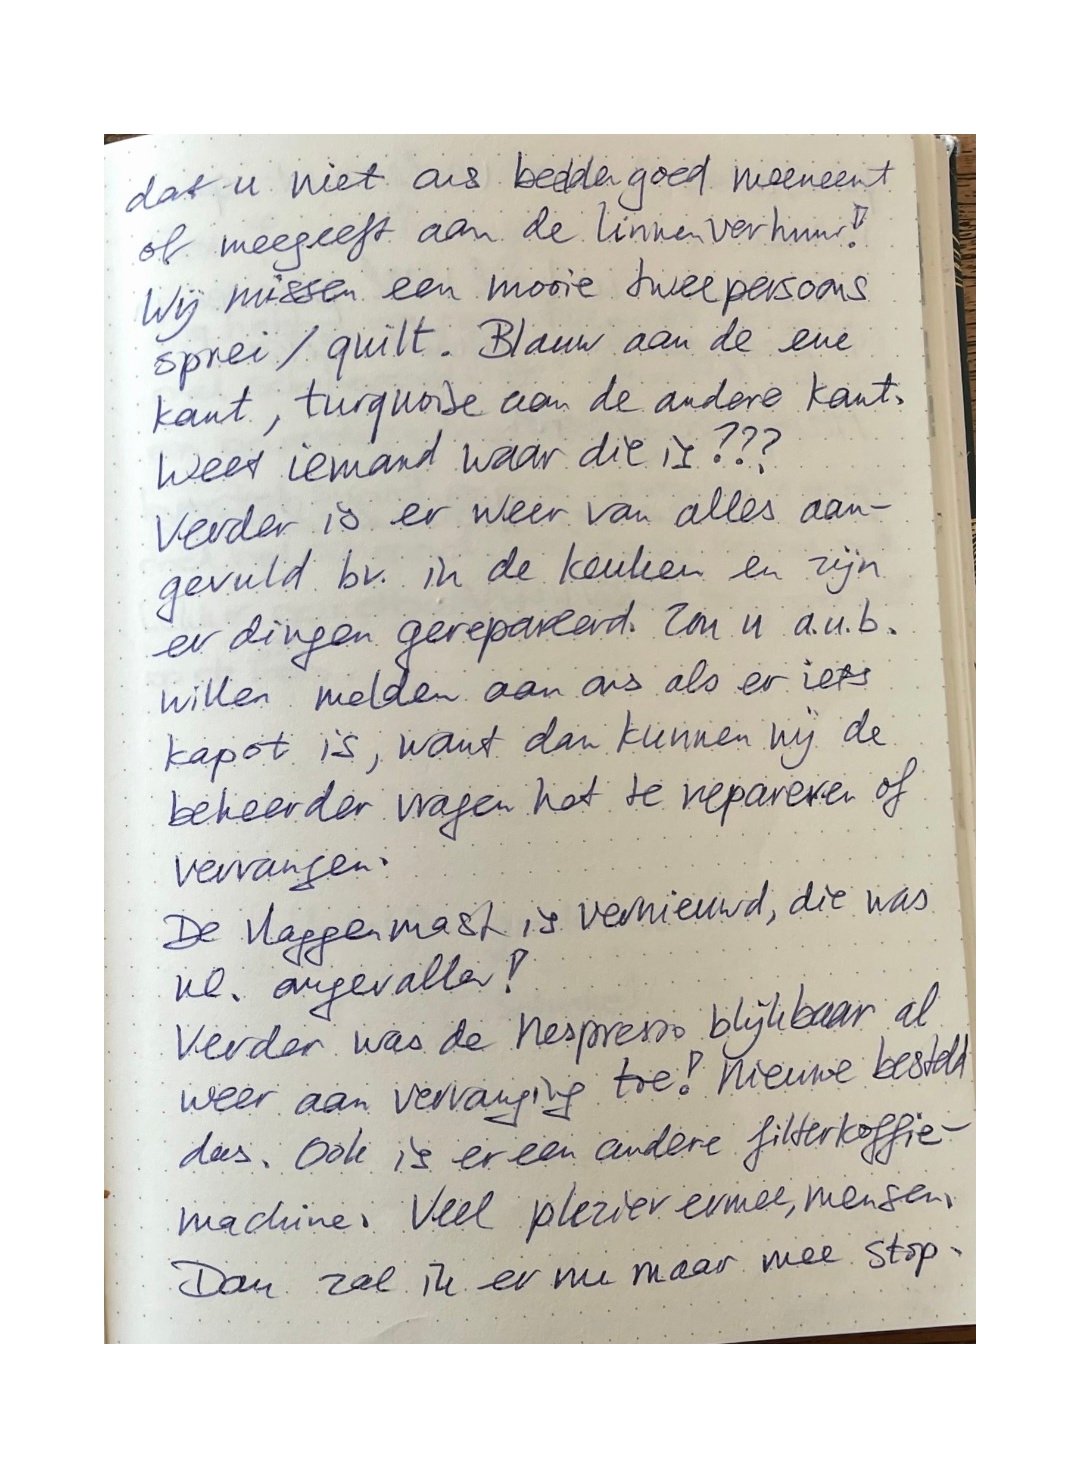 dat u niet ons beddengoed meeneemt
of meegeeft aan de linnenverhuur!
Wij missen een mooie tweepersoons
sprei / quilt. Blauw aan de ene
kant, turquoise aan de andere kant.
Weet iemand waar die is???
Verder is er weer van alles aan-
gevuld bv. in de keuken en zijn
er dingen gerepareerd. Zou u a.u.b.
willen melden aan ons als er iets
kapot is, want dan kunnen wij de
beheerder vragen het te repareren of
vervangen.
De vlaggenmast is vernieuwd, die was
nl. omgevallen!
Verder was de Nespresso blijkbaar al
weer aan vervanging toe! Nieuwe besteld
dus. Ook is er een andere filterkoffie-
machine. Veel plezier ermee, mensen.
Dan zal ik er nu maar mee stop.